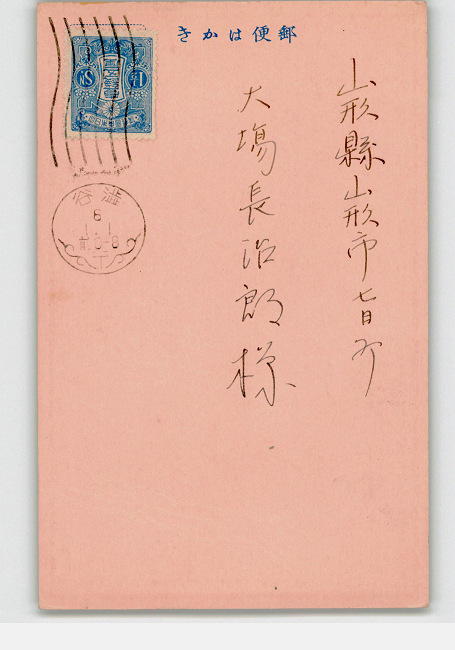 きかは便郵
山形縣山形市七日町
大場長治郎様
澁谷
6
1.1
前6-8